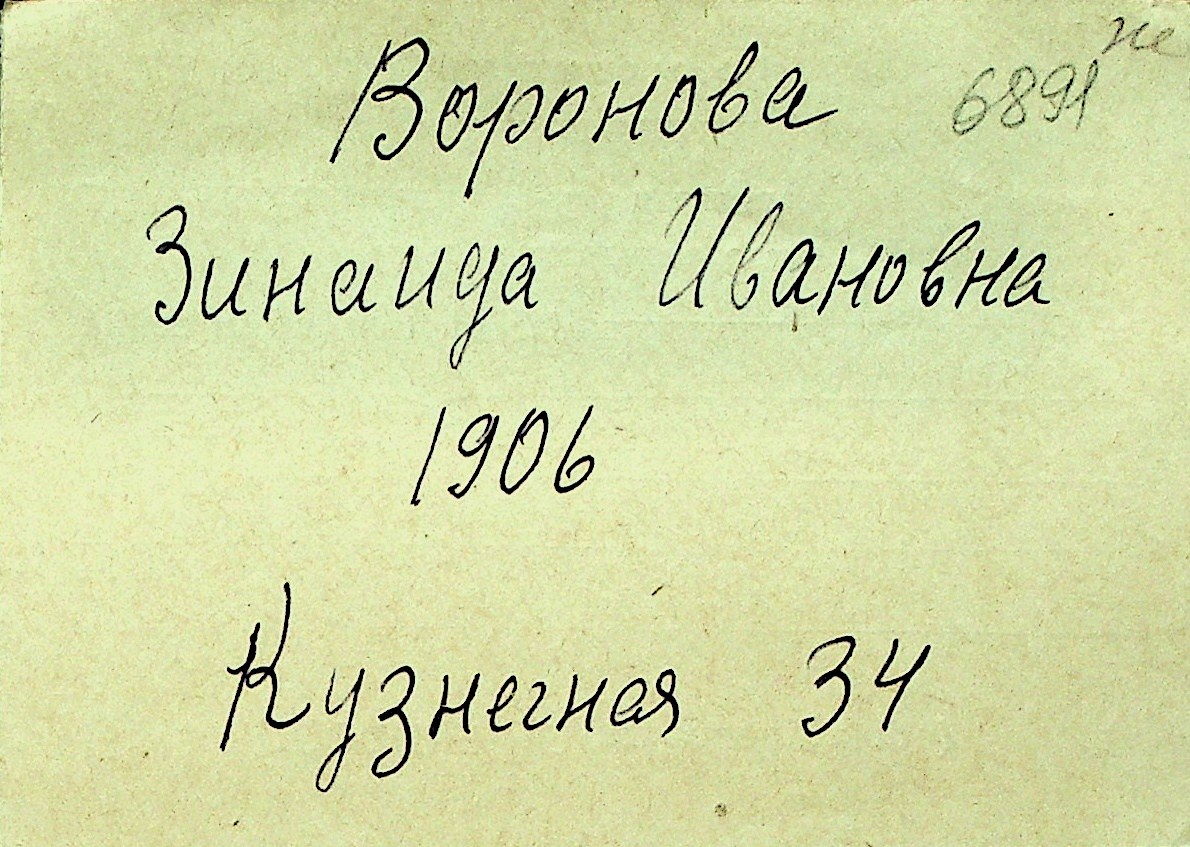 Воронова
6891
Зинаида Ивановна
1906
Кузнечная 34